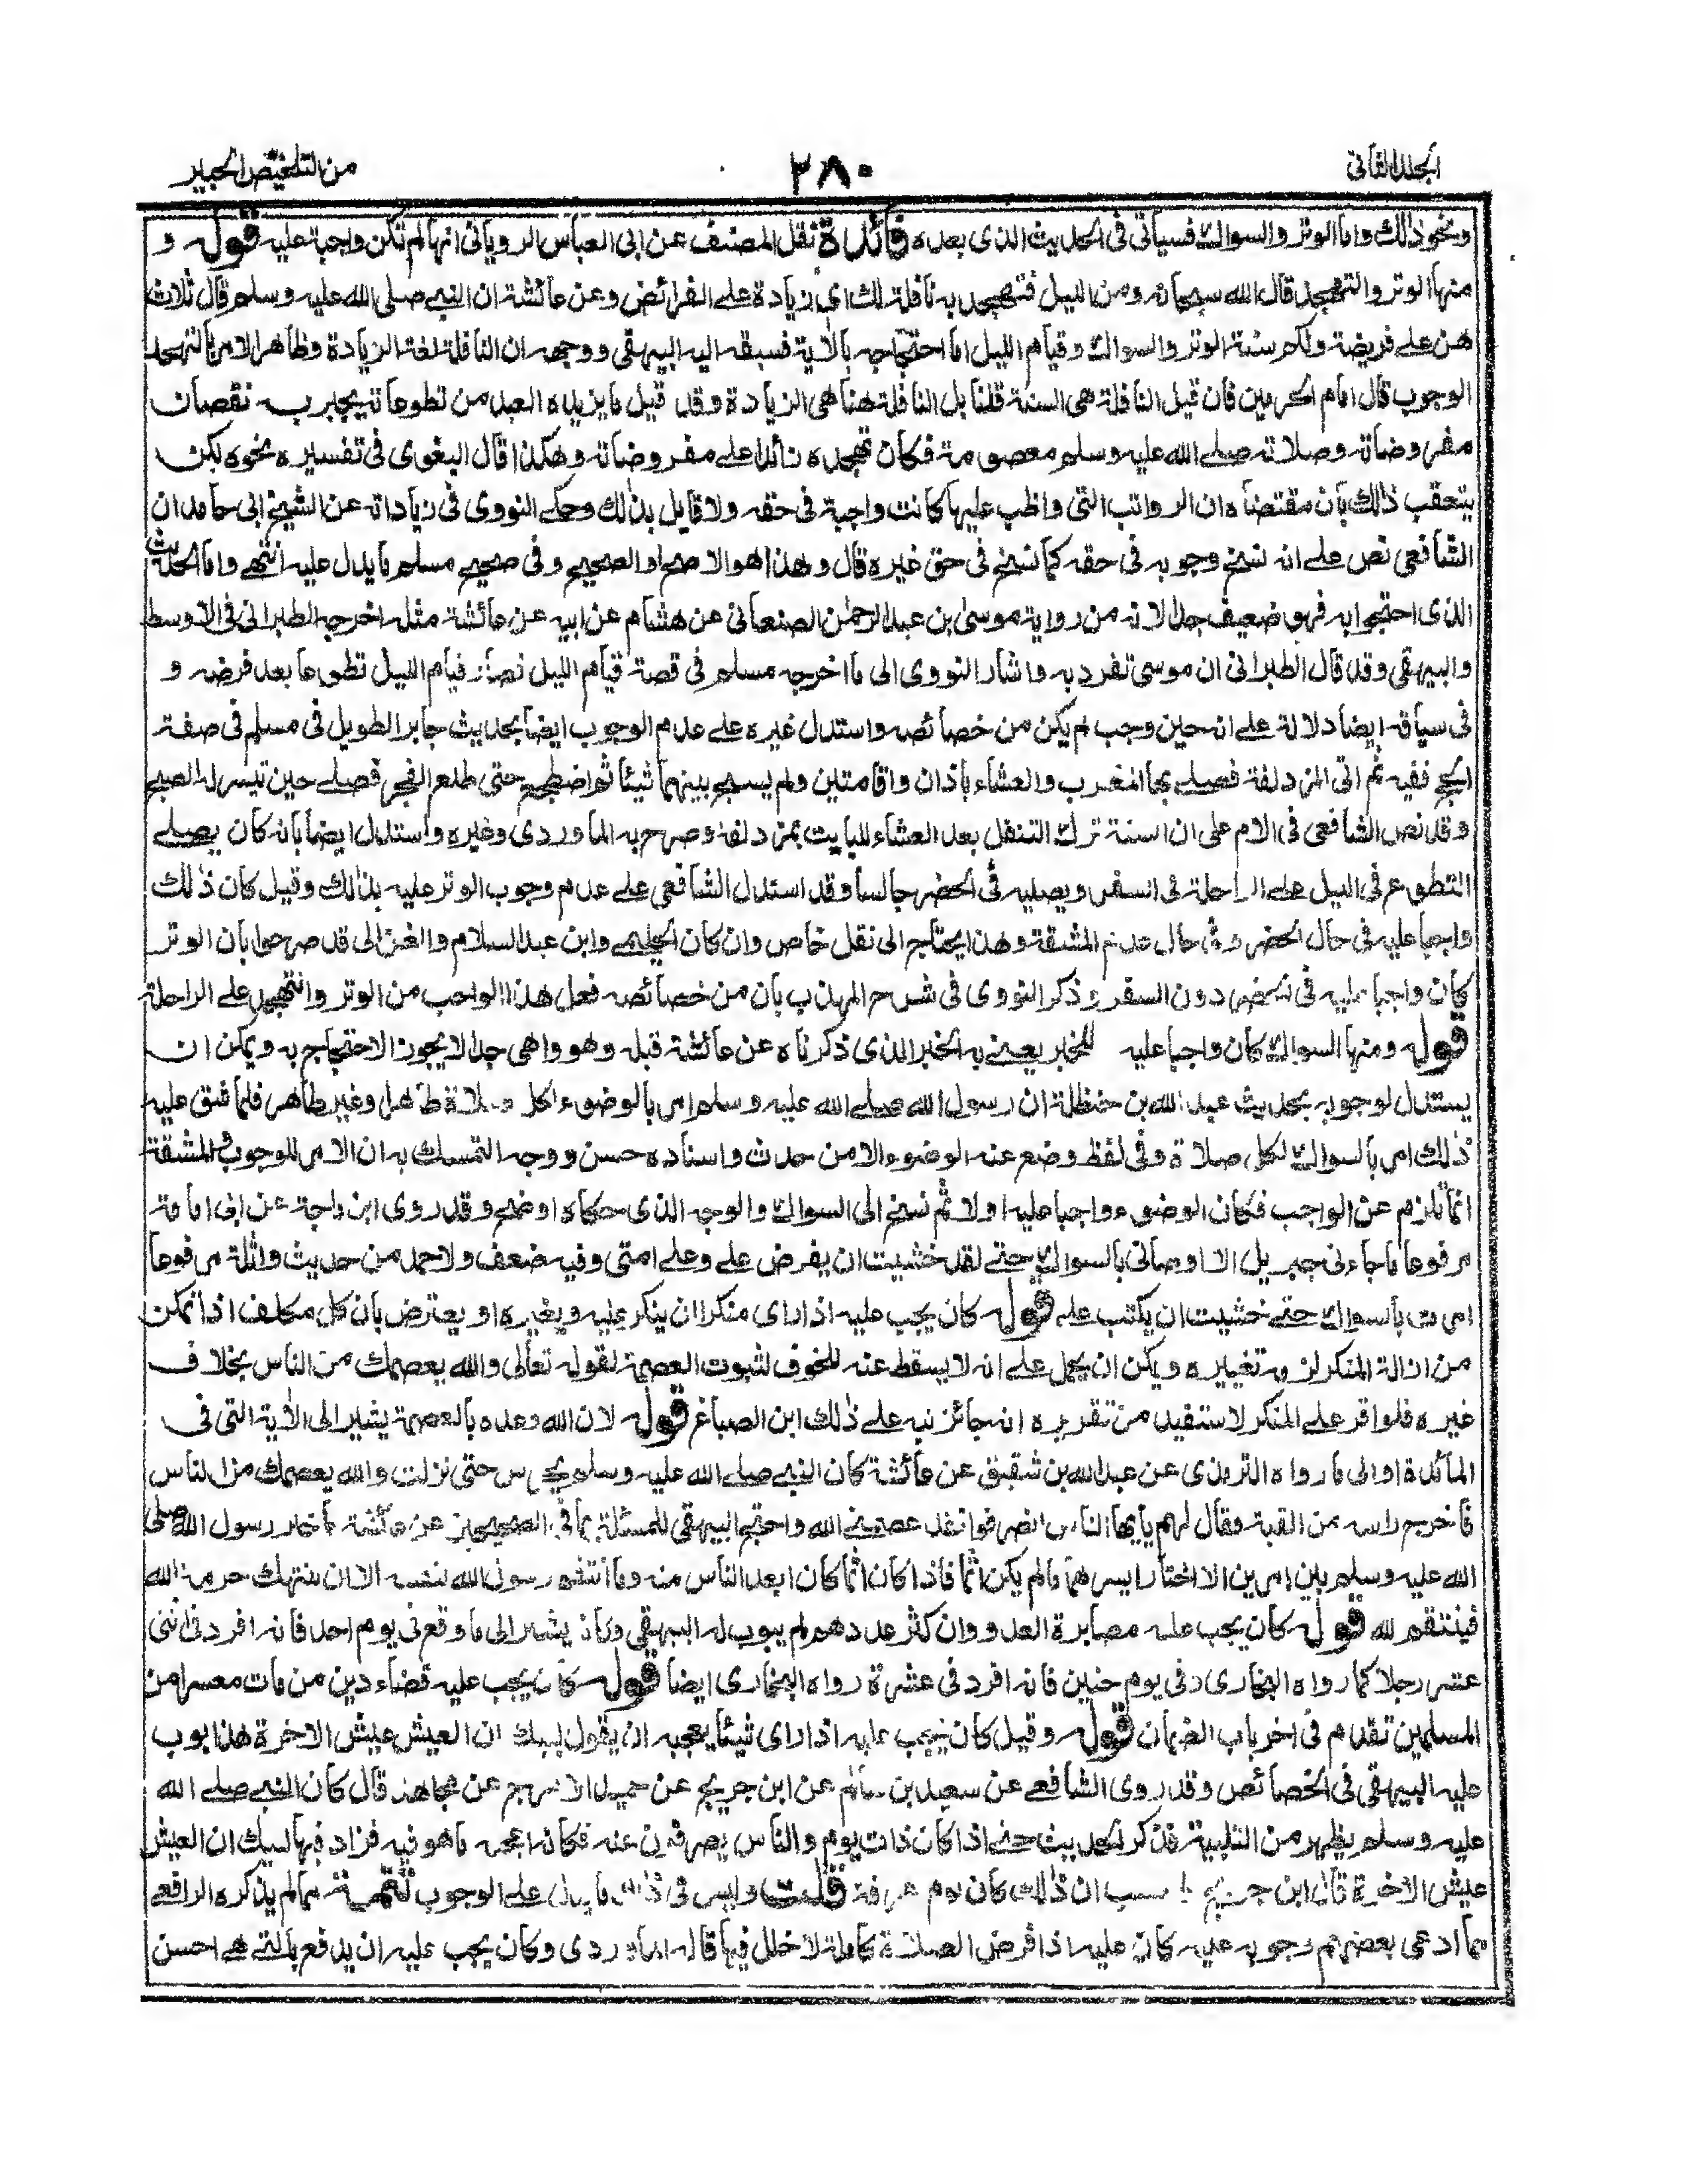 المجلد الثانی
٢٨٠
من التلخیص الحبیر
ونحو ذلك واما الوتر والسواك فسیأتی فی الحدیث الذی بعده فائدة نقل المصنف عن ابی العباس الرویانی انها لم تكن واجبة علیه قوله و
منها الوتر والتهجد قال الله سبحانه ومن اللیل فتهجد به نافلة لك ای زیادة علی الفرائض وعن عائشة ان النبی صلی الله علیه وسلم قال ثلاث
هن علی فریضة ولكم سنة الوتر والسواك وقیام اللیل اما احتجاجه بالآیة فسبقه الیه البیهقی ووجهه ان النافلة لغة الزیادة وظاهر الامر بالتهجد
الوجوب قال امام الحرمین فان قیل النافلة هی السنة قلنا بل النافلة هنا هی الزیادة وقد قیل ما یزیده العبد من تطوعاته یجبر به نقصان
مفروضاته وصلاته صلی الله علیه وسلم معصومة فكان تهجده زائدا علی مفروضاته وهكذا قال البغوی فی تفسیره نحوه لكن
یتعقب ذلك بان مقتضاه ان الرواتب التی واظب علیها كانت واجبة فی حقه ولا قایل بذلك وحكی النووی فی زیاداته عن الشیخ ابی حامد ان
الشافعی نص علی انه نسخ وجوبه فی حقه كما نسخ فی حق غیره قال وهذا هو الاصح او الصحیح وفی صحیح مسلم ما یدل علیه انتهی واما الحدیث
الذی احتجوا به فهو ضعیف جدا لانه من روایة موسی بن عبد الرحمن الصنعانی عن هشام عن ابیه عن عائشة مثله اخرجه الطبرانی فی الاوسط
والبیهقی وقد قال الطبرانی ان موسی تفرد به واشار النووی الی ما اخرجه مسلم فی قصة قیام اللیل فصار قیام اللیل تطوعا بعد فرضه و
فی سیاقه ایضا دلالة علی انه حین وجب لم یكن من خصائصه واستدل غیره علی عدم الوجوب ایضا بحدیث جابر الطویل فی مسلم فی صفة
الحج ففیه ثم اتی المزدلفة فصلی بها المغرب والعشاء باذان واقامتین ولم یسبح بینهما شیئا ثم اضطجع حتی طلع الفجر فصلی حین تیسر له الصبح
وقد نص الشافعی فی الام علی ان السنة ترك التنفل بعد العشاء للبایت بمزدلفة وصرح به الماوردی وغیره واستدل ایضا بانه كان یصلی
التطوع فی اللیل علی الراحلة فی السفر ویصلیه فی الحضر جالسا وقد استدل الشافعی علی عدم وجوب الوتر علیه بذلك وقیل كان ذلك
واجبا علیه فی حال الحضر وفی حال عدم المشقة وهذا یحتاج الی نقل خاص وان كان الحلیمی وابن عبد السلام والغزالی قد صرحوا بان الوتر
كان واجبا علیه فی الحضر دون السفر وذكر النووی فی شرح المهذب بان من خصائصه فعل هذا الواجب من الوتر والتهجد علی الراحلة
قوله ومنها السواك كان واجبا علیه للخبر یعنی به الخبر الذی ذكرناه عن عائشة قبله وهو واهی جدا لا یجوز الاحتجاج به ویمكن ان
یستدل لوجوبه بحدیث عبد الله بن حنظلة ان رسول الله صلی الله علیه وسلم امر بالوضوء لكل صلاة طاهرا وغیر طاهر فلما شق علیه
ذلك امر بالسواك لكل صلاة وفی لفظ وضع عنه الوضوء الا من حدث واسناده حسن ووجه التمسك به ان الامر للوجوب والمشقة
انما تلزم عن الواجب فكان الوضوء واجبا علیه اولا ثم نسخ الی السواك والوجه الذی حكاه اوضح وقد روی ابن ماجة عن ابی امامة
مرفوعا ما جاءنی جبریل الا اوصانی بالسواك حتی لقد خشیت ان یفرض علی وعلی امتی وفیه ضعف ولاحمد من حدیث واثلة مرفوعا
امرت بالسواك حتی خشیت ان یكتب علی قوله كان یجب علیه اذا رای منكرا ان ینكر علیه ویغیره او یعترض بان كل مكلف اذا تمكن
من ازالة المنكر لزمه تغییره ویمكن ان یحمل علی انه لا یسقط عنه للخوف لثبوت العصمة لقوله تعالی والله یعصمك من الناس بخلاف
غیره فلو اقر علی المنكر لاستفید من تقریره انه جائز نبه علی ذلك ابن الصباغ قوله لان الله وعده بالعصمة یشیر الی الآیة التی فی
المائدة او الی ما رواه الترمذی عن عبد الله بن شقیق عن عائشة كان النبی صلی الله علیه وسلم یحرس حتی نزلت والله یعصمك من الناس
فاخرج راسه من القبة وقال لهم یا یها الناس انصرفوا فقد عصمنی الله واحتج البیهقی للمسئلة بما فی الصحیحین عن عائشة ما خیر رسول الله صلی
الله علیه وسلم بین امرین الا اختار ایسرهما ما لم یكن اثما فاذا كان اثما كان ابعد الناس منه وما انتقم رسول الله لنفسه الا ان ینتهك حرمة الله
فینتقم لله قوله كان یجب علیه مصابرة العدو وان كثر عددهم لم یبوب له البیهقی وكانه یشیر الی ما وقع فی یوم احد فانه افرد فی اثنی
عشر رجلا كما رواه البخاری وفی یوم حنین فانه افرد فی عشرة رواه البخاری ایضا قوله كان یجب علیه قضاء دین من مات معسرا من
المسلمین تقدم فی اخر باب الضمان قوله وقیل كان یجب علیه اذا رای شیئا یعجبه ان یقول لبیك ان العیش عیش الاخرة هذا بوب
علیه البیهقی فی الخصائص وقد روی الشافعی عن سعید بن سالم عن ابن جریج عن حمید الاعرج عن مجاهد قال كان النبی صلی الله
علیه وسلم یظهر من التلبیة فذكر الحدیث حتی اذا كان ذات یوم والناس یصرفون عنه فكانه اعجبه ما هو فیه فزاد فیها لبیك ان العیش
عیش الاخرة قال ابن جریج احسب ان ذلك كان یوم عرفة قلت ولیس فی ذلك ما یدل علی الوجوب تتمة مما لم یذكره الرافعی
مما ادعی بعضهم وجوبه علیه كان علیه اذا فرض الصلاة كاملة لا خلل فیها قاله الماوردی وكان یجب علیه ان یدفع بالتی هی احسن